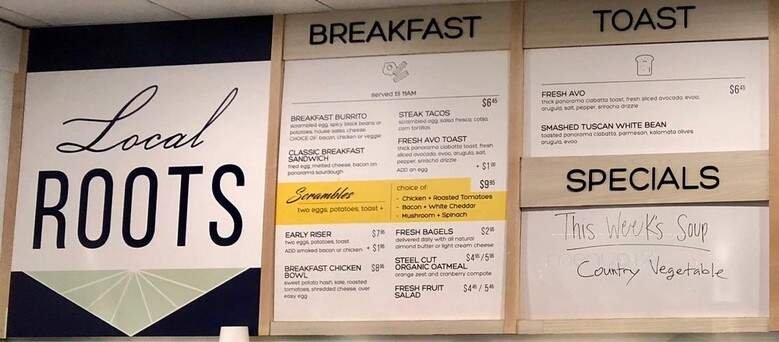 Local
ROOTS
BREAKFAST
served til 11AM
$6⁴⁵
BREAKFAST BURRITO
scrambled egg, spicy black beans or
potatoes, house salsa, cheese
CHOICE OF: bacon, chicken or veggie
CLASSIC BREAKFAST
SANDWICH
fried egg, melted cheese, bacon on
panorama sourdough
STEAK TACOS
scrambled egg, salsa fresca, cotija
corn tortillas
FRESH AVO TOAST
thick panorama ciabatta toast, fresh
sliced avocado, evoo, arugula, salt,
pepper, sriracha drizzle
ADD an egg + $1⁰⁰
Scrambles
two eggs, potatoes, toast +
$9⁹⁵
choice of:
- Chicken + Roasted Tomatoes
- Bacon + White Cheddar
- Mushroom + Spinach
EARLY RISER $7⁹⁵
two eggs, potatoes, toast
ADD smoked bacon or chicken + $1⁹⁵
BREAKFAST CHICKEN $8⁹⁵
BOWL
sweet potato hash, kale, roasted
tomatoes, shredded cheese, over
easy egg
FRESH BAGELS $2⁹⁵
delivered daily with all natural
almond butter or light cream cheese
STEEL CUT $4⁴⁵/5⁴⁵
ORGANIC OATMEAL
orange zest and cranberry compote
FRESH FRUIT $4⁴⁵/5⁴⁵
SALAD
TOAST
FRESH AVO $6⁴⁵
thick panorama ciabatta toast, fresh sliced avocado, evoo,
arugula, salt, pepper, sriracha drizzle
SMASHED TUSCAN WHITE BEAN
toasted panorama ciabatta, parmesan, kalamata olives
arugula, evoo
SPECIALS
This Week's Soup
Country Vegetable